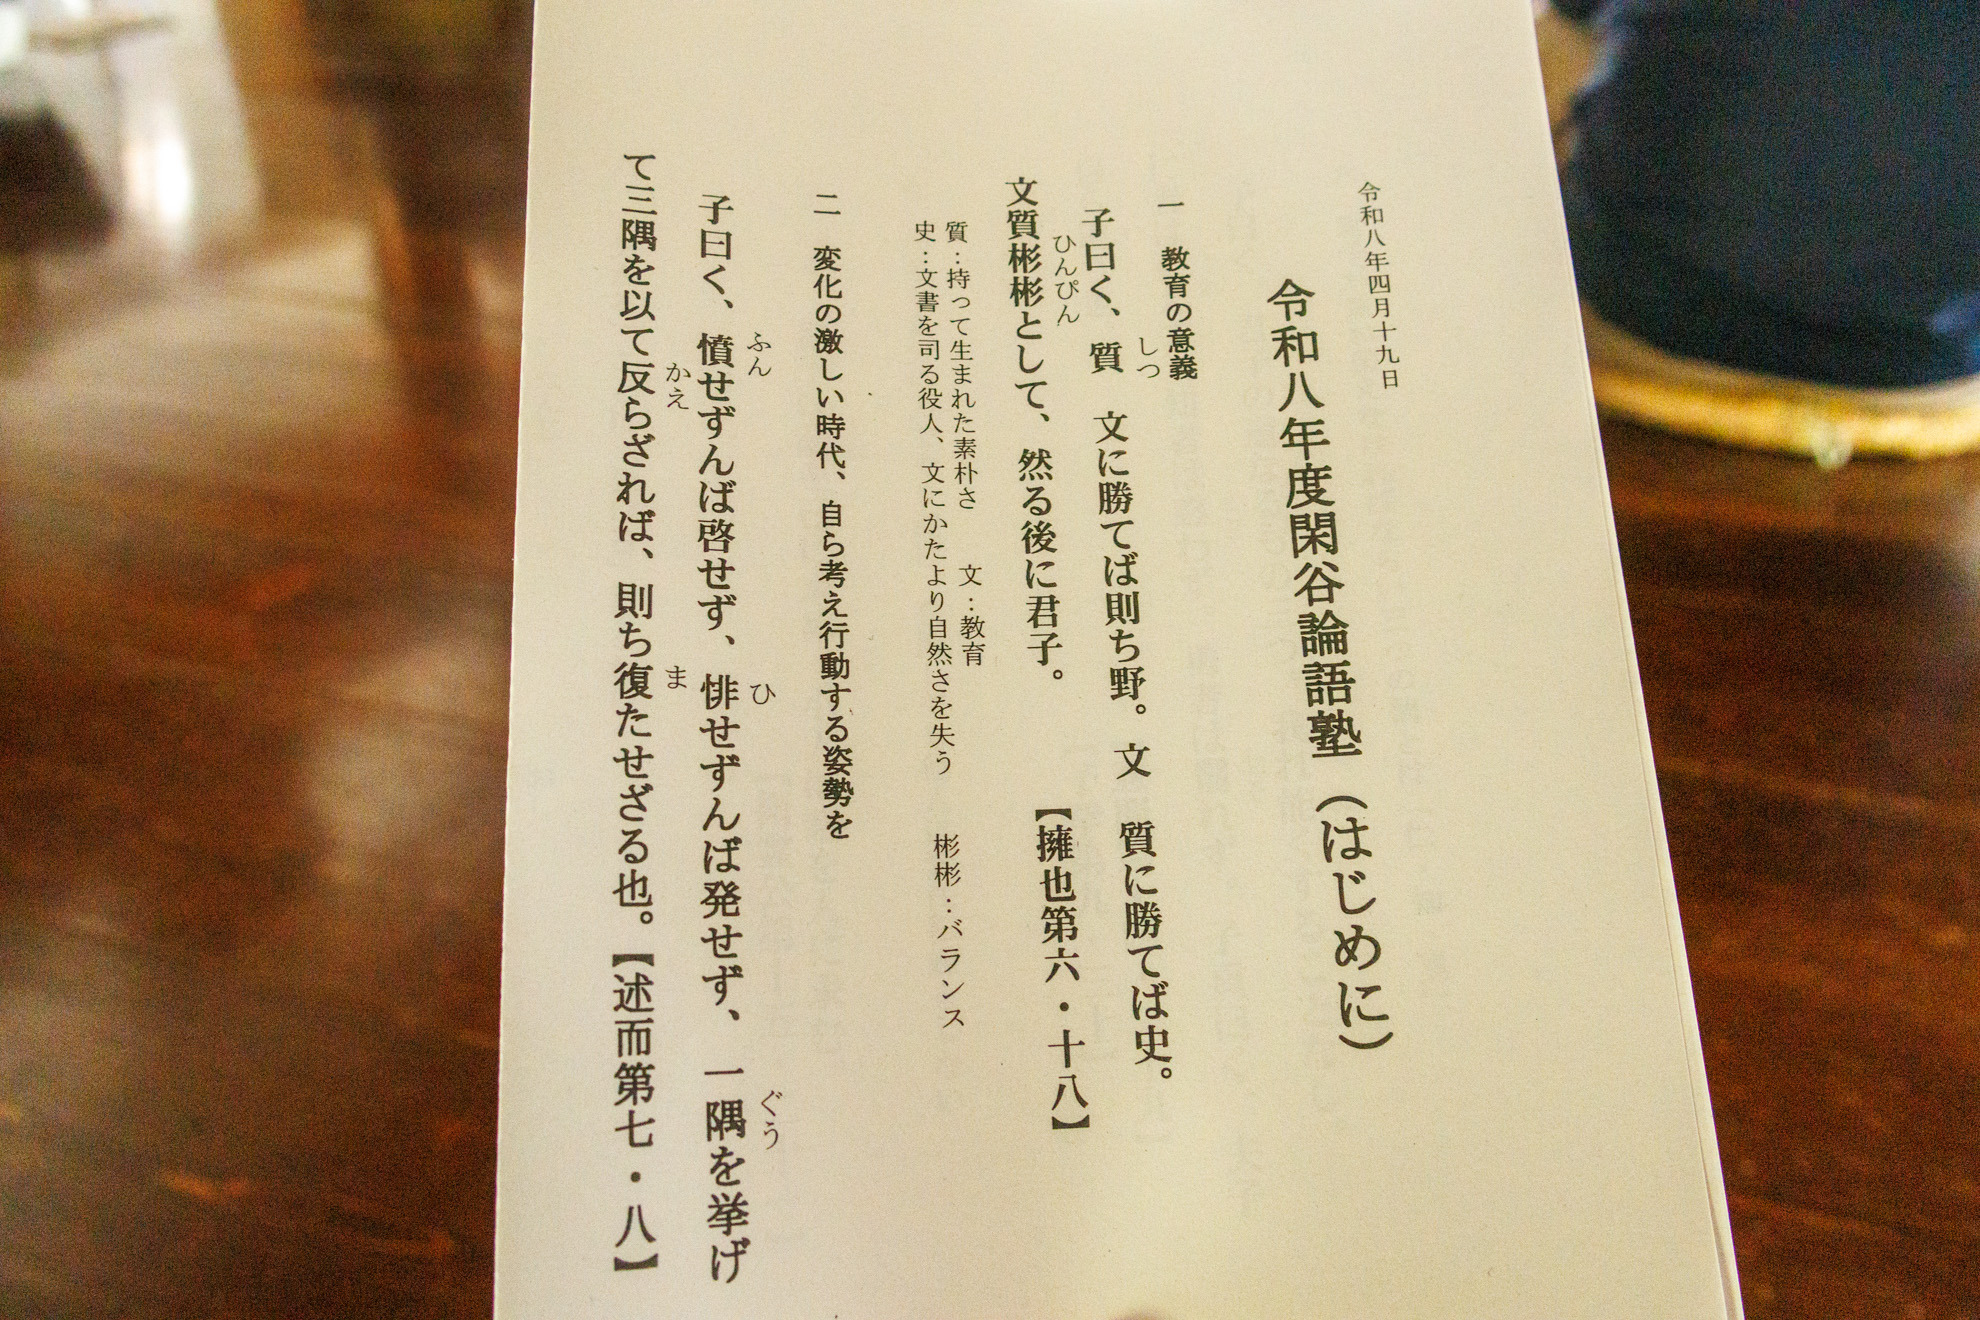 令和八年四月十九日
令和八年度閑谷論語塾（はじめに）
一　教育の意義
子曰く、質　文に勝てば則ち野。文　質に勝てば史。
しつ
文質彬彬として、然る後に君子。　【擁也第六・十八】
ひんぴん
質：持って生まれた素朴さ　文：教育
史：文書を司る役人、文にかたより自然さを失う　彬彬：バランス
二　変化の激しい時代、自ら考え行動する姿勢を
子曰く、憤せずんば啓せず、悱せずんば発せず、一隅を挙げ
ふん　ひ　ぐう
て三隅を以て反らざれば、則ち復たせざる也。【述而第七・八】
かえ　ま